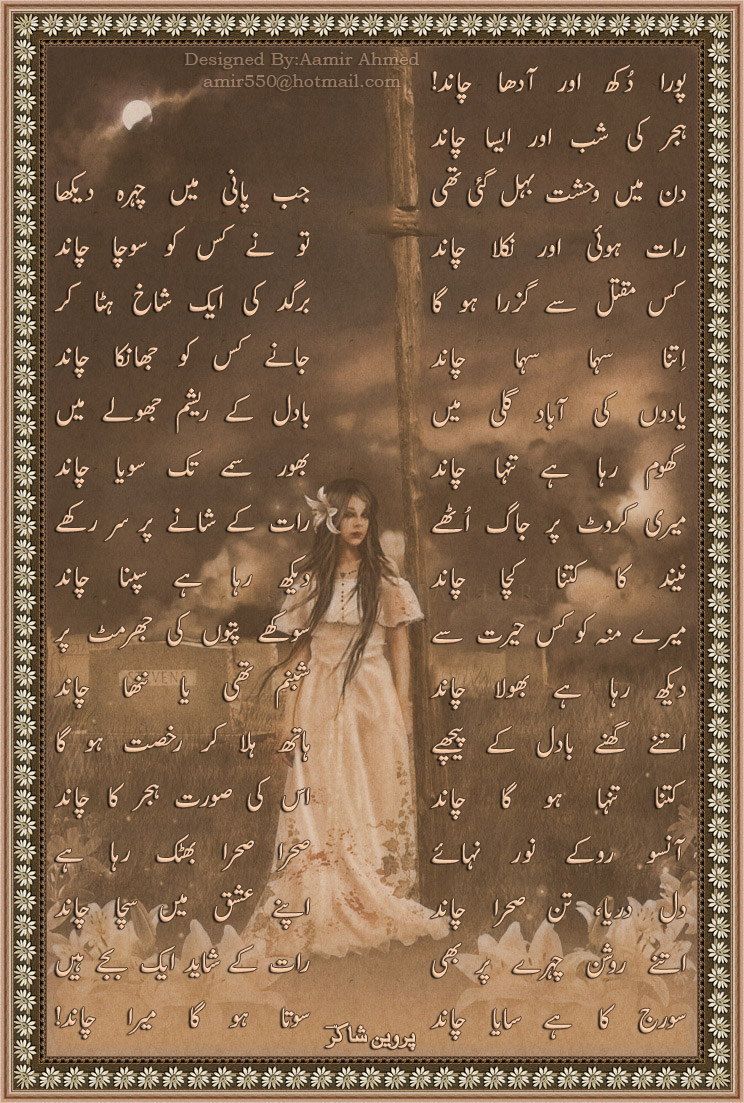 Designed By:Aamir Ahmed
amir550@hotmail.com
پورا دُکھ اور آدھا چاند!
ہجر کی شب اور ایسا چاند
دن میں وحشت بہل گئی تھی
رات ہوئی اور نکلا چاند
کس مقتل سے گزرا ہو گا
اِتنا سہا سہا چاند
یادوں کی آباد گلی میں
گھوم رہا ہے تنہا چاند
میری کروٹ پر جاگ اُٹھے
نیند کا کتنا کچا چاند
میرے منہ کو کس حیرت سے
دیکھ رہا ہے بھولا چاند
اتنے گھنے بادل کے پیچھے
کتنا تنہا ہو گا چاند
آنسو روکے نور نہائے
دل دریا، تن صحرا چاند
اتنے روشن چہرے پر بھی
سورج کا ہے سایا چاند
جب پانی میں چہرہ دیکھا
تو نے کس کو سوچا چاند
برگد کی ایک شاخ ہٹا کر
جانے کس کو جھانکا چاند
بادل کے ریشم جھولے میں
بھور سمے تک سویا چاند
رات کے شانے پر سر رکھے
دیکھ رہا ہے سپنا چاند
سوکھے پتوں کی جھرمٹ پر
شبنم تھی یا ننھا چاند
ہاتھ ہلا کر رخصت ہو گا
اس کی صورت ہجر کا چاند
صحرا صحرا بھٹک رہا ہے
اپنے عشق میں سچا چاند
رات کے شاید ایک بجے ہیں
سوتا ہو گا میرا چاند!
پروین شاکر